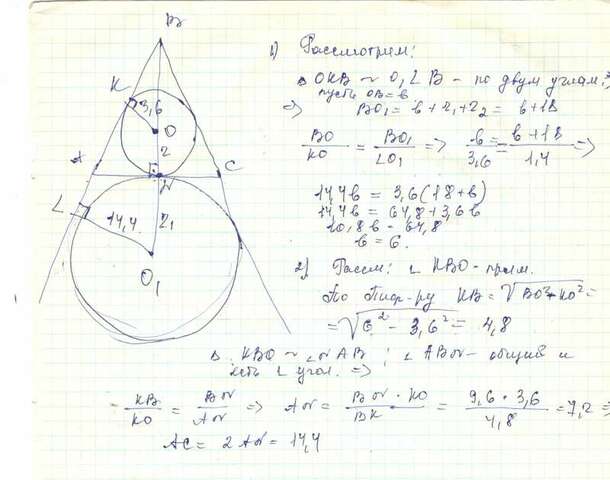 B
K
3,6
O
r
A
N
C
L
14,4
r₁
O₁
1) Рассмотрим:
△ OKB ~ O₁LB – по двум углам;
пусть OB = b
=> BO₁ = b + r₁ + r₂ = b + 18
BO/KO = BO₁/LO₁ => b/3,6 = b+18/1,4 =>
14,4b = 3,6(18+b)
14,4b = 64,8 + 3,6b
10,8b = 64,8
b = 6.
2) Рассм: ∟ KBO – прям.
По Пиф-ру KB = √BO² - KO² =
= √6² - 3,6² = 4,8
△ KBO ~ NAB ; ∠ ABN – общий и
есть ∟ угол. =>
KB/KO = BN/AN => AN = BN · KO/BK = 9,6 · 3,6/4,8 = 7,2 =>
AC = 2AN = 14,4